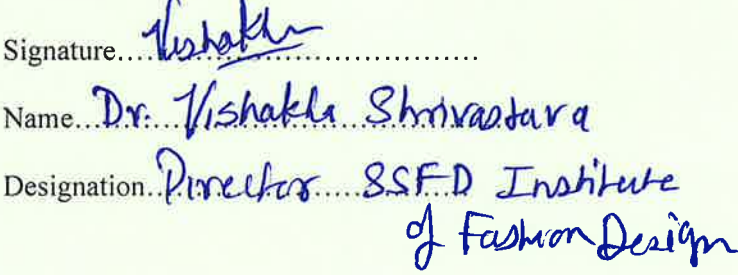 Signature....Vishakha..........................
Name...Dr. Vishakha Shrivastava
Designation..Director.....SSFD Institute
of Fashion Design